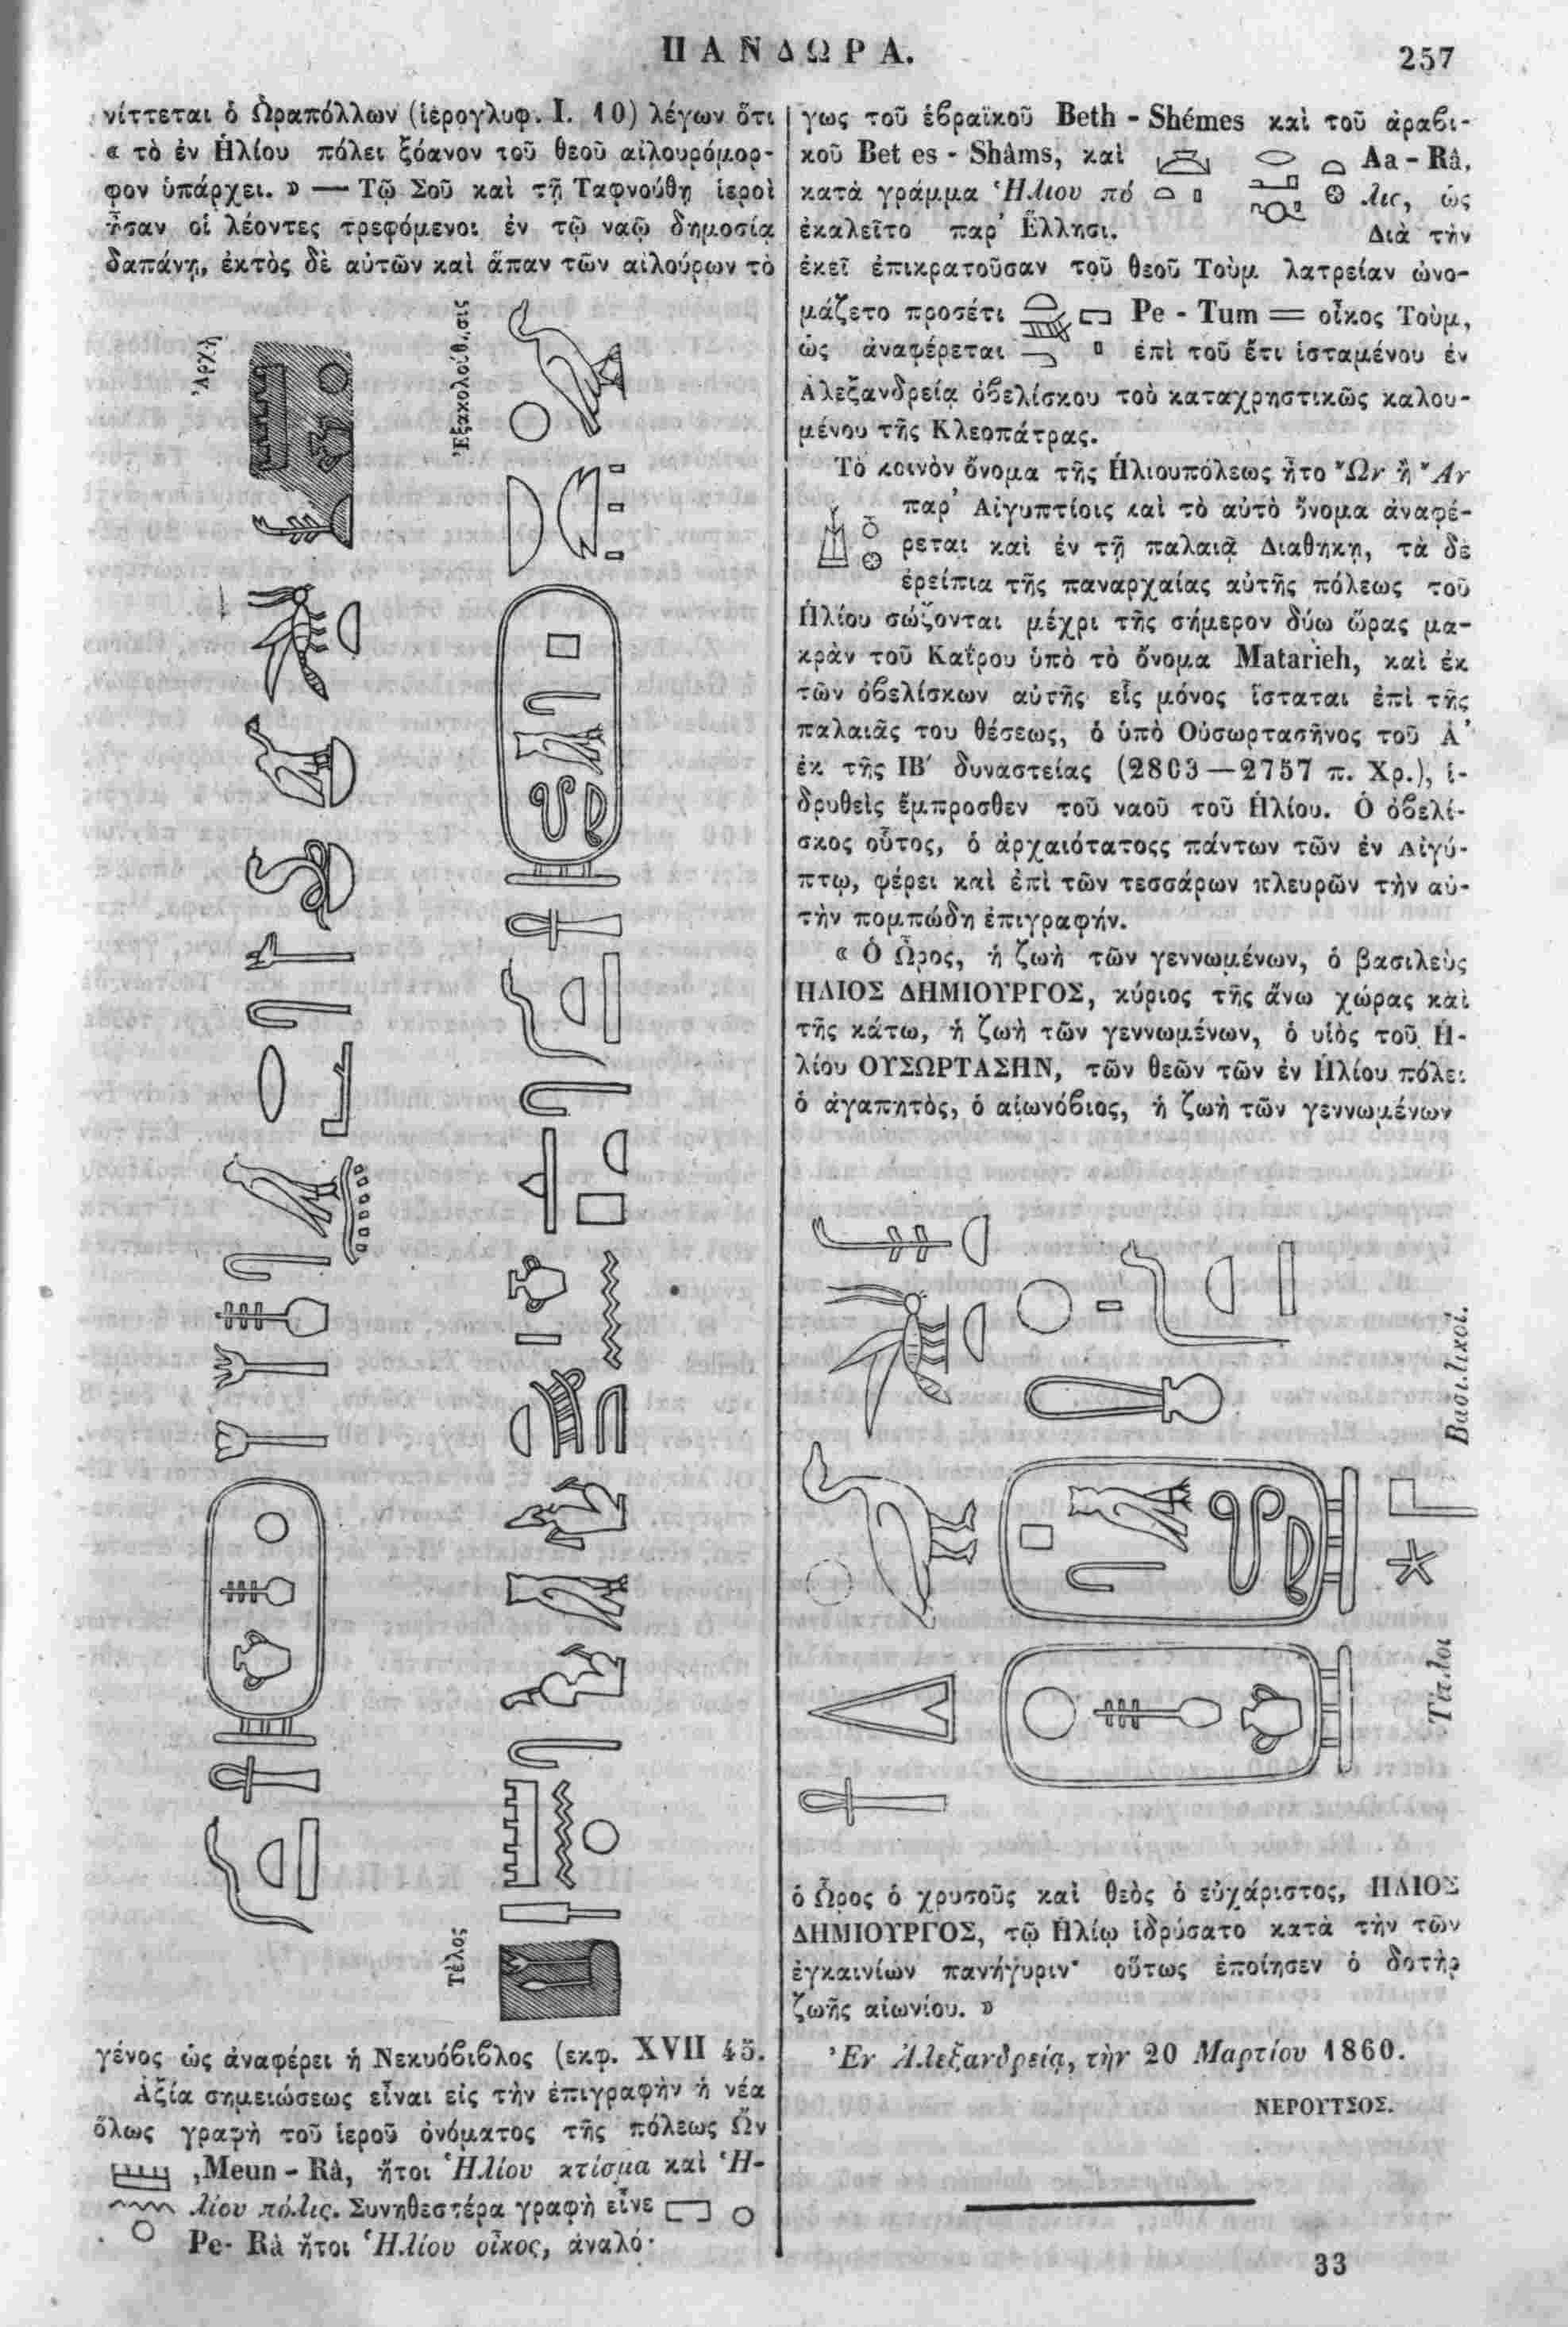 ΠΑΝΔΩΡΑ.
257
νίττεται ὁ Ὡραπόλλων (ἱερογλυφ. I. 10) λέγων ὅτι
« τὸ ἐν Ἡλίου πόλει ξόανον τοῦ θεοῦ αἰλουρόμορ-
φον ὑπάρχει. » — Τῷ Σοῦ καὶ τῇ Ταφνούθῃ ἱεροὶ
ἦσαν οἱ λέοντες τρεφόμενοι ἐν τῷ ναῷ δημοσίᾳ
δαπάνῃ, ἐκτὸς δὲ αὐτῶν καὶ ἅπαν τῶν αἰλούρων τὸ
Ἀρχὴ
Ἐξακολούθησις
Τέλος
γένος ὡς ἀναφέρει ἡ Νεκυόβιβλος (εκφ. XVII 45.
Ἀξία σημειώσεως εἶναι εἰς τὴν ἐπιγραφὴν ἡ νέα
ὅλως γραφὴ τοῦ ἱεροῦ ὀνόματος τῆς πόλεως Ὢν
,Meun - Râ, ἤτοι Ἡλίου κτίσμα καὶ Ἡ-
λίου πόλις. Συνηθεστέρα γραφὴ εἶνε
Pe- Râ ἤτοι Ἡλίου οἶκος, ἀναλό-
γως τοῦ ἑβραϊκοῦ Beth - Shémes καὶ τοῦ ἀραβι-
κοῦ Bet es - Shâms, καὶ Aa - Râ,
κατὰ γράμμα Ἡλιου πό λις, ὡς
ἐκαλεῖτο παρ' Ἕλλησι. Διὰ τὴν
ἐκεῖ ἐπικρατοῦσαν τοῦ θεοῦ Τοὺμ λατρείαν ὠνο-
μάζετο προσέτι Pe - Tum = οἶκος Τοὺμ,
ὡς ἀναφέρεται ἐπὶ τοῦ ἔτι ἱσταμένου ἐν
Ἀλεξανδρείᾳ ὀβελίσκου τοῦ καταχρηστικῶς καλου-
μένου τῆς Κλεοπάτρας.
Τὸ κοινὸν ὄνομα τῆς Ἡλιουπόλεως ἦτο Ὢν ἢ Ἂν
παρ' Αἰγυπτίοις καὶ τὸ αὐτὸ ὄνομα ἀναφέ-
ρεται καὶ ἐν τῇ παλαιᾷ Διαθηκῃ, τὰ δὲ
ἐρείπια τῆς παναρχαίας αὐτῆς πόλεως τοῦ
Ἡλίου σώζονται μέχρι τῆς σήμερον δύω ὥρας μα-
κρὰν τοῦ Καΐρου ὑπὸ τὸ ὄνομα Matarieh, καὶ ἐκ
τῶν ὀβελίσκων αὐτῆς εἷς μόνος ἵσταται ἐπὶ τῆς
παλαιᾶς του θέσεως, ὁ ὑπὸ Οὐσωρτασῆνος τοῦ Α'
ἐκ τῆς ΙΒ' δυναστείας (2803 — 2757 π. Χρ.), ἱ-
δρυθεὶς ἔμπροσθεν τοῦ ναοῦ τοῦ Ἡλίου. Ὁ ὀβελί-
σκος οὗτος, ὁ ἀρχαιότατοςς πάντων τῶν ἐν Αἰγύ-
πτῳ, φέρει καὶ ἐπὶ τῶν τεσσάρων πλευρῶν τὴν αὐ-
τὴν πομπώδη ἐπιγραφήν.
« Ὁ Ὧρος, ἡ ζωὴ τῶν γεννωμένων, ὁ βασιλεὺς
ΗΛΙΟΣ ΔΗΜΙΟΥΡΓΟΣ, κύριος τῆς ἄνω χώρας καὶ
τῆς κάτω, ἡ ζωὴ τῶν γεννωμένων, ὁ υἱὸς τοῦ Ἡ-
λίου ΟΥΣΩΡΤΑΣΗΝ, τῶν θεῶν τῶν ἐν Ἡλίου πόλει
ὁ ἀγαπητὸς, ὁ αἰωνόβιος, ἡ ζωὴ τῶν γεννωμένων
Βασιλικοί.
Τίτλοι
ὁ Ὧρος ὁ χρυσοῦς καὶ θεὸς ὁ εὐχάριστος, ΗΛΙΟΣ
ΔΗΜΙΟΥΡΓΟΣ, τῷ Ἡλίῳ ἱδρύσατο κατὰ τὴν τῶν
ἐγκαινίων πανήγυριν· οὕτως ἐποίησεν ὁ δοτὴρ
ζωῆς αἰωνίου. »
Ἐν Ἀλεξανδρείᾳ, τὴν 20 Μαρτίου 1860.
ΝΕΡΟΥΤΣΟΣ.
33